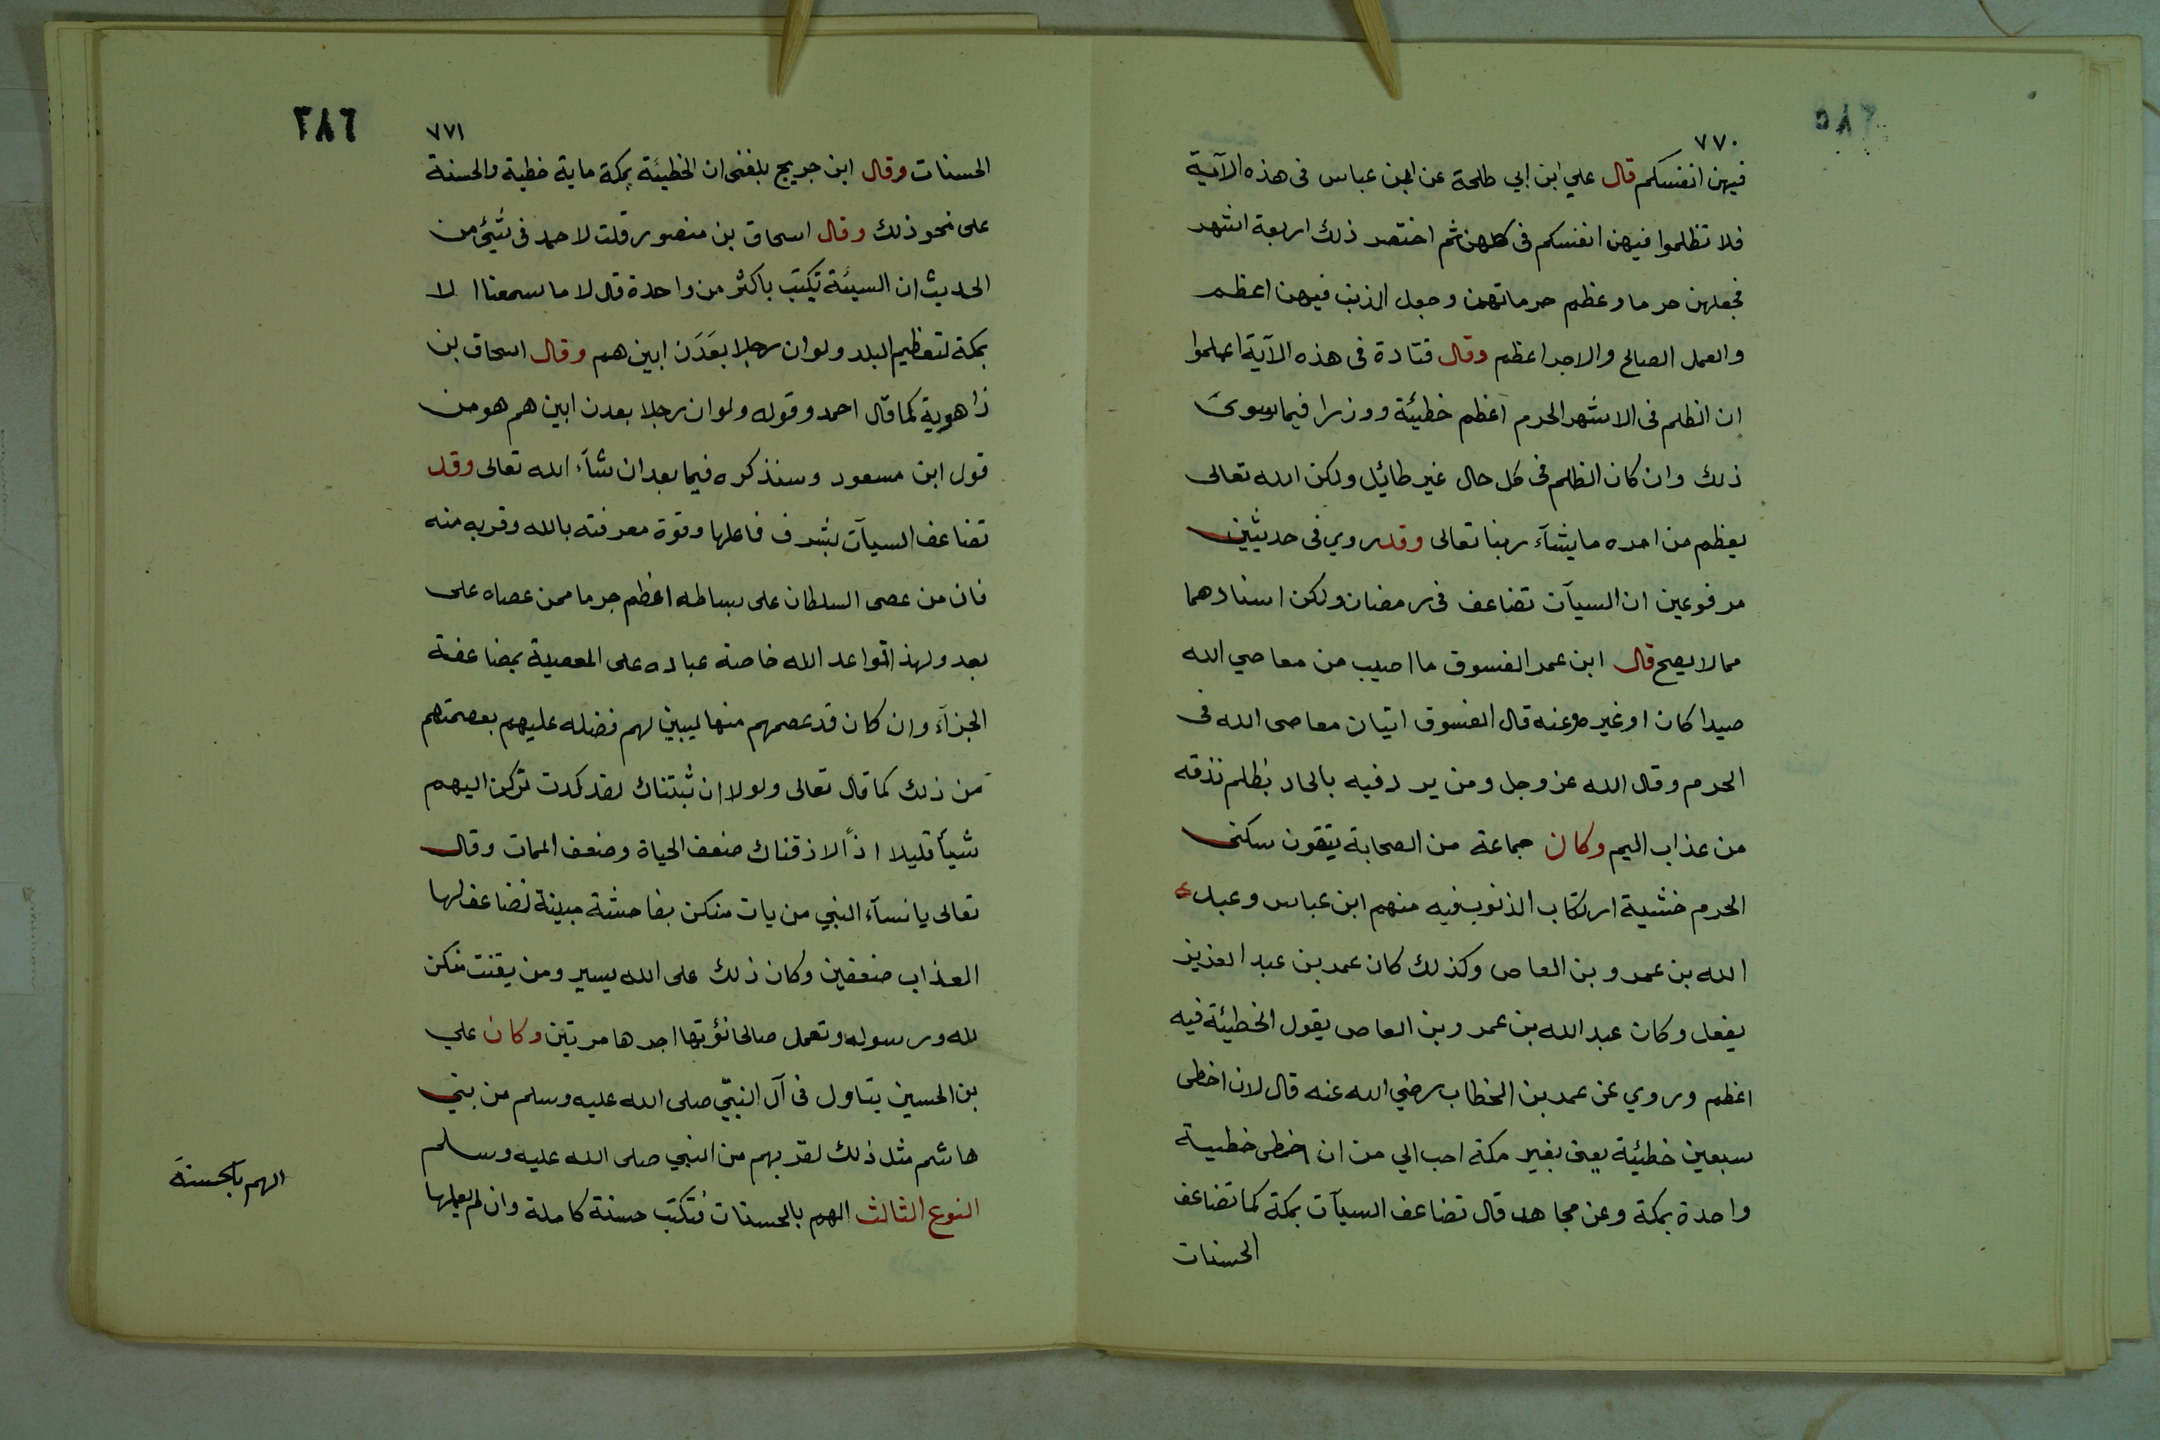 ٣٨٥
٧٧٠
فيهن انفسكم قال علي ابن ابي طلحة عن ابن عباس في هذه الآية
فلا تظلموا فيهن انفسكم في كلهن ثم اختصر ذلك اربعة اشهر
فجعلهن حرما وعظم حرماتهن وجعل الذنب فيهن اعظم
والعمل الصالح والاجر اعظم وقال قتادة في هذه الآية اعلموا
ان الظلم في الاشهر الحرم اعظم خطيئة ووزرا فيما سوى
ذلك وان كان الظلم في كل حال غير طائل ولكن الله تعالى
يعظم من امره ما يشآء ربنا تعالى وقد روي في حديثين
مرفوعين ان السيآت تضاعف في رمضان ولكن اسنادهما
مما لا يصح قال ابن عمر الفسوق ما اصيب من معاصي الله
صيدا كان او غيره وعنه قال الفسوق اتيان معاصى الله في
الحرم وقال الله عز وجل ومن يرد فيه بالحاد بظلم نذقه
من عذاب اليم وكان جماعة من الصحابة يتقون سكنى
الحرم خشية ارتكاب الذنوب فيه منهم ابن عباس وعبد
الله بن عمرو بن العاص وكذلك كان عمر بن عبد العزيز
يفعل وكان عبد الله بن عمرو بن العاص يقول الخطيئة فيه
اعظم وروي عن عمر بن الخطاب رضي الله عنه قال لان اخطى
سبعين خطيئة يعني بغير مكة احب الي من ان اخطى خطيية
واحدة بمكة وعن مجاهد قال تضاعف السيآت بمكة كما تضاعف
الحسنات
٣٨٦
٧٧١
الحسنات وقال ابن جريج بلغني ان الخطيئة بمكة ماية خطية والحسنة
على نحو ذلك وقال اسحاق بن منصور قلت لاحمد في شئ من
الحديث ان السيئة تكتب باكثر من واحدة قال لا ما سمعنا الا
بمكة لتعظيم البلد ولو ان رجلا بعَدَن ابين هم وقال اسحاق بن
زاهوية كما قال احمد وقوله ولو ان رجلا بعدن ابين هم هو من
قول ابن مسعود وسنذكره فيما بعد ان شآء الله تعالى وقد
تضاعف السيآت بشرف فاعلها وقوة معرفته بالله وقربه منه
فان من عصى السلطان على بساطه اعظم جرما ممن عصاه على
بعد ولهذا تواعد الله خاصة عباده على المعصية بمضاعفة
الجزآء وان كان قد عصمهم منها ليبين لهم فضله عليهم بعصمتهم
من ذلك كما قال تعالى ولولا ان ثبتناك لقد كدت تركن اليهم
شيأ قليلا اذاً لاذقناك ضعف الحياة وضعف الممات وقال
تعالى يا نسآء النبي من يات منكن بفاحشة مبينة نضاعف لها
العذاب ضعفين وكان ذلك على الله يسير ومن يقنت منكن
لله ورسوله وتعمل صالحا نؤتها اجرها مرتين وكان علي
بن الحسين يتاول في آل النبيّ صلى الله عليه وسلم من بني
هاشم مثل ذلك لقربهم من النبي صلى الله عليه وسلم
النوع الثالث الهم بالحسنات فتكتب حسنة كاملة وان لم يعملها
الهم بالحسنة